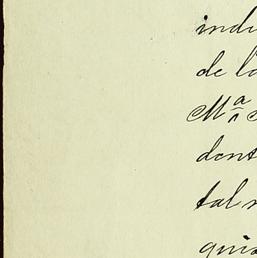 indi
de la
Mª
dent
tal
quis